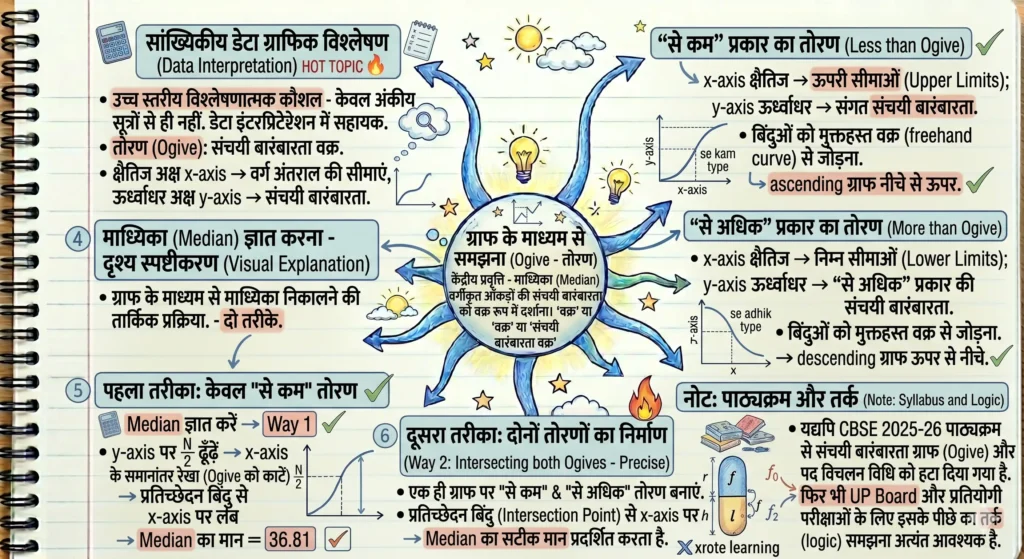 सांख्यिकीय डेटा ग्राफिक विश्लेषण
(Data Interpretation) HOT TOPIC
• उच्च स्तरीय विश्लेषणात्मक कौशल - केवल अंकीय
सूत्रों से ही नहीं. डेटा इंटरप्रिटेशन में सहायक.
• तोरण (Ogive): संचयी बारंबारता वक्र.
• क्षैतिज अक्ष x-axis → वर्ग अंतराल की सीमाएं,
ऊर्ध्वाधर अक्ष y-axis → संचयी बारंबारता.
"से कम" प्रकार का तोरण (Less than Ogive)
x-axis क्षैतिज → ऊपरी सीमाओं (Upper Limits);
y-axis ऊर्ध्वाधर → संगत संचयी बारंबारता.
• बिंदुओं को मुक्तहस्त वक्र (freehand
curve) से जोड़ना.
ascending ग्राफ नीचे से ऊपर.
y-axis
se kam
type
x-axis
ग्राफ के माध्यम से
समझना (Ogive - तोरण)
केंद्रीय प्रवृत्ति - माध्यिका (Median)
वर्गीकृत आँकड़ों की संचयी बारंबारता
को वक्र रूप में दर्शाना। 'वक्र' या
'वक्र' या 'संचयी
बारंबारता वक्र'
"से अधिक" प्रकार का तोरण (More than Ogive)
• x-axis क्षैतिज → निम्न सीमाओं (Lower Limits);
y-axis ऊर्ध्वाधर → "से अधिक" प्रकार की
संचयी बारंबारता.
• बिंदुओं को मुक्तहस्त वक्र से जोड़ना.
→ descending ग्राफ ऊपर से नीचे.
se adhik
type
x
4 माध्यिका (Median) ज्ञात करना -
दृश्य स्पष्टीकरण (Visual Explanation)
• ग्राफ के माध्यम से माध्यिका निकालने की
तार्किक प्रक्रिया. - दो तरीके.
5 पहला तरीका: केवल "से कम" तोरण
Median ज्ञात करें → Way 1
• y-axis पर N/2 ढूँढ़ें → x-axis
के समानांतर रेखा (Ogive को काटें)
→ प्रतिच्छेदन बिंदु से
x-axis पर लंब
→ Median का मान = 36.81
N/2
6 दूसरा तरीका: दोनों तोरणों का निर्माण
(Way 2: Intersecting both Ogives - Precise)
• एक ही ग्राफ पर "से कम" & "से अधिक" तोरण बनाएं.
• प्रतिच्छेदन बिंदु (Intersection Point) से x-axis पर
→ Median का सटीक मान प्रदर्शित करता है.
नोट: पाठ्यक्रम और तर्क (Note: Syllabus and Logic)
• यद्यपि CBSE 2025-26 पाठ्यक्रम
से संचयी बारंबारता ग्राफ (Ogive) और
पद विचलन विधि को हटा दिया गया है.
फिर भी UP Board और प्रतियोगी
परीक्षाओं के लिए इसके पीछे का तर्क
(logic) समझना अत्यंत आवश्यक है.
r
h
f
l
f
f₀
f₂
xrote learning